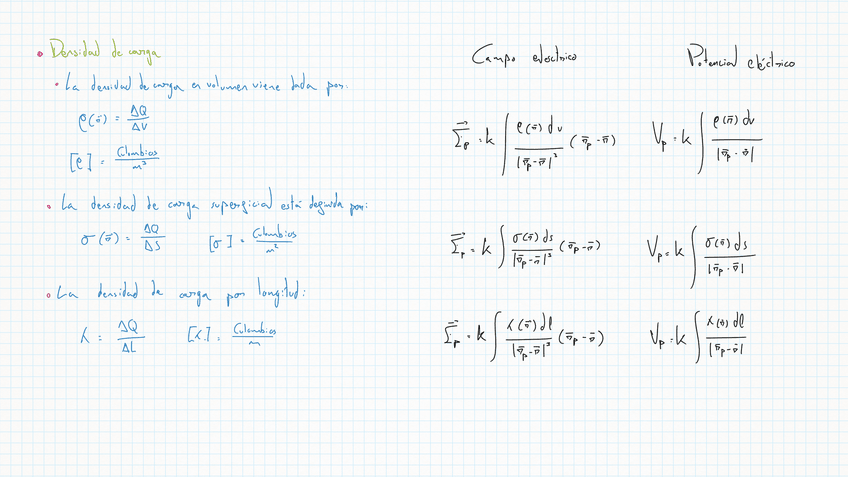 Densidad de carga
La densidad de carga en volumen viene dada por:
ρ(r̄) = ΔQ/ΔV
[ρ] = Culombios/m³
La densidad de carga superficial está definida por:
σ(r̄) = ΔQ/ΔS [σ] = Culombios/m²
La densidad de carga por longitud:
λ = ΔQ/ΔL [λ] = Culombios/m
Campo eléctrico
E⃗p = k ∫ ρ(r̄) dv / |r̄p - r̄|³ (r̄p - r̄)
E⃗p = k ∫ σ(r̄) ds / |r̄p - r̄|³ (r̄p - r̄)
E⃗p = k ∫ λ(r̄) dl / |r̄p - r̄|³ (r̄p - r̄)
Potencial eléctrico
Vp = k ∫ ρ(r̄) dv / |r̄p - r̄|
Vp = k ∫ σ(r̄) ds / |r̄p - r̄|
Vp = k ∫ λ(r̄) dl / |r̄p - r̄|